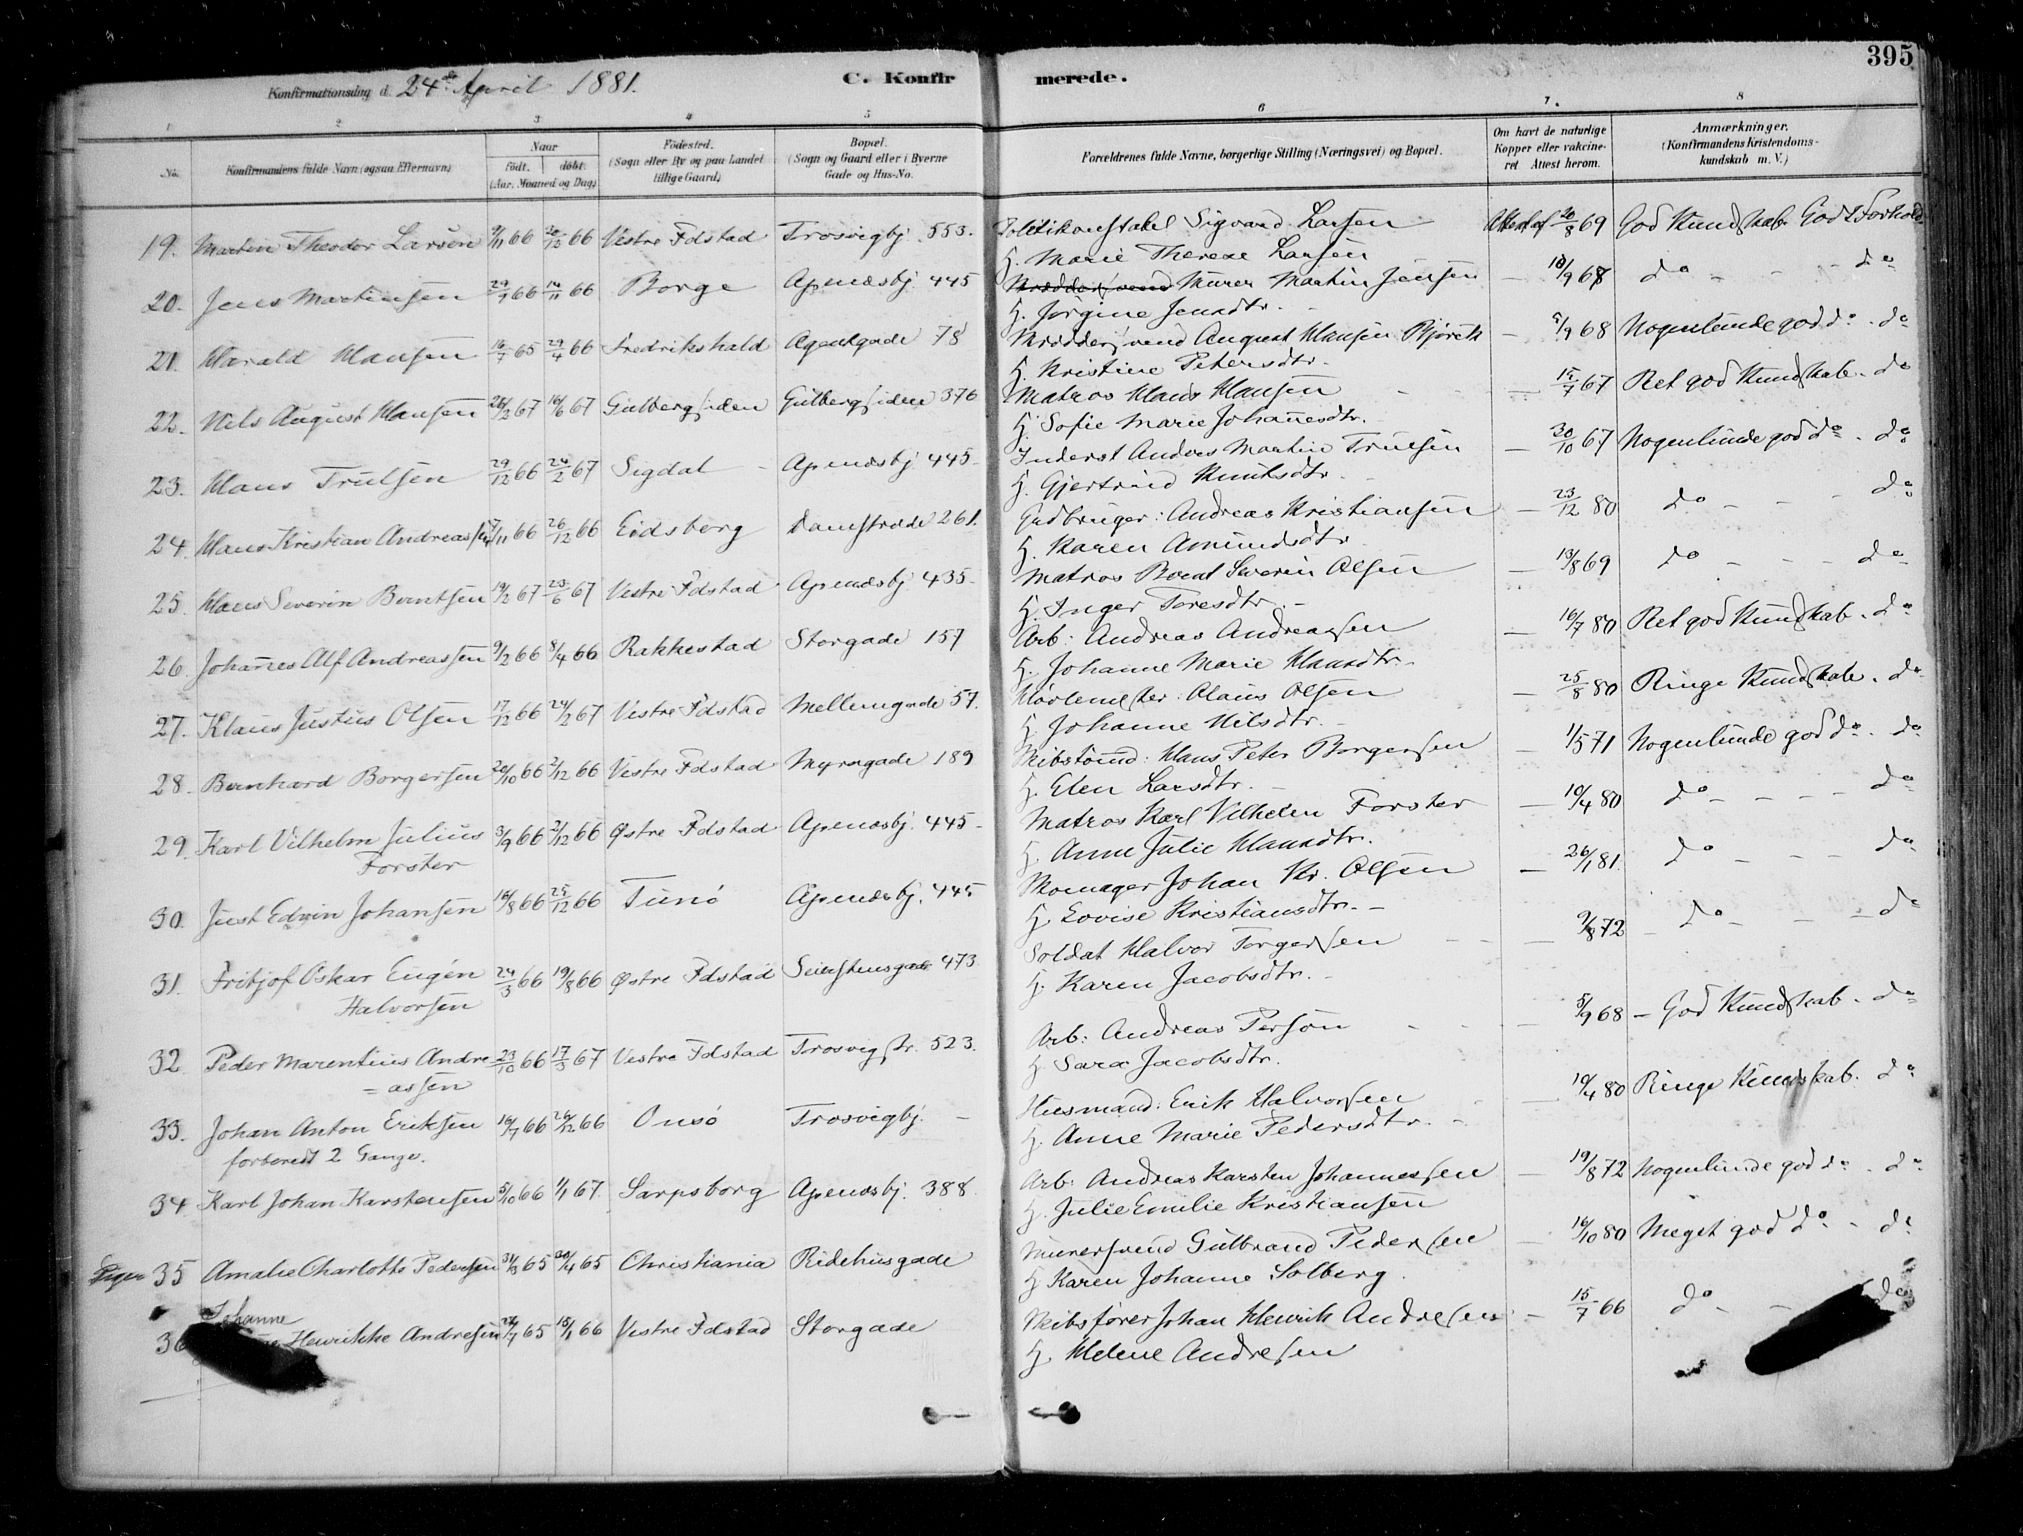 395
Konfirmationsdag d. 24de April 1881.
C. Konfir merede.
1 2 3 4 5 6 7. 8
No. Konfirmandens fulde Navn (ogsaa Efternavn)
Naar født. døbt. (Aar, Maaned og Dag)
Fødested. (Sogn eller By og paa Landet tillige Gaard)
Bopæl. (Sogn og Gaard eller i Byerne Gade og Hus-No.
Forældrenes fulde Navne, borgerlige Stilling (Næringsvei) og Bopæl.
Om havt de naturlige Kopper eller vakcineret Attest herom.
Anmærkninger. (Konfirmandens Kristendomskundskab m. V.)
19. Martin Theodor Larsen 9/11 66 26/12 66 Vestre Fdstad Trosvigbj. 553. Politikonstabel Sigvard Larsen Attest af 20/8 69 God Kundskab. Godt Forhold
H. Marie Therese Larsen
20. Jens Martinsen 29/9 66 14/11 66 Borge Apenæsbj. 445 Murer Martin Jensen — 18/9 68 do - - - do
H. Jørgine Jensdtr. -
21. Harald Hansen 16/7 65 29/4 66 Fredrikshald Agentgade 78 Skræddersvend August Hansen Bjørck — 5/9 68 Nogenlunde god do. do
H. Kristine Petersdtr.
22. Nils August Hansen 26/2 67 16/6 67 Gulbergsiden Gulbergsiden 376 Matros Hans Hansen — 15/7 67 Ret god Kundskab. do
H. Sofie Marie Johanesdtr.
23. Hans Trulsen 29/12 66 24/2 67 Sigdal - Apenæsbj. 445. Inderst Anders Martin Trulsen — 30/10 67 Nogenlunde god do. do
H. Gjertrud Knutsdtr.
24. Hans Kristian Andreassen /11 66 26/12 66 Eidsberg Damstræde 261. Gadbruger: Andreas Kristiansen — 23/12 80 do - - - do
H. Karen Amundsdtr.
25. Hans Severin Berntsen 19/2 67 23/6 67 Vestre Fdstad Apenæsbj. 435. Matros Bernt Severin Olsen — 13/8 69 do - - - do
H. Inger Toresdtr. -
26. Johanes Alf Andreassen 9/2 66 8/4 66 Rakkestad Storgade 157 Arb: Andreas Andreassen — 16/7 80 Ret god Kundskab. do
H. Johanne Marie Hansdtr.
27. Klaus Justus Olsen 17/12 66 24/2 67 Vestre Fdstad Mellemgade 57. Claus Olsen — 25/8 80 Ringe Kundskab. do
H. Johanne Nilsdtr. -
28. Bernhard Borgersen 20/10 66 2/12 66 Vestre Fdstad Myragade 189 Skibstømd: Hans Peter Borgersen — 1/5 71 Nogenlunde god do. do
H. Elen Larsdtr. -
29. Karl Vilhelm Julius 3/9 66 2/12 66 Østre Fdstad Apenæsbj. 445 - Matros Karl Vilhelm Forster — 10/4 80 do - - - - do
Forster
H. Anne Julie Hansdtr.
30. Just Edvin Johansen 16/8 66 25/12 66 Tunø Apenæsbj. 445 Skomager Johan Kr. Olsen — 26/1 81. do - - - do
H. Lovise Kristiansdtr. -
31. Fritjof Oskar Eugén 24/3 66 19/8 66 Østre Fdstad Seierstensgade 473. Soldat Halvor Torgersen — 9/8 72 - do - - - do
Halvorsen
H. Karen Jacobsdtr. -
32. Peder Marentius Andre 23/10 66 17/3 67 Vestre Fdstad Trosvigstr. 523. Arb: Andreas Person — 5/9 68 - God Kundskab. do
= assen
H Sara Jacobsdtr.
33. Johan Anton Eriksen 16/7 66 26/12 66 Onsø Trosvigbj. - Husmand: Erik Halvorsen — 10/4 80 Ringe Kundskab. do
forberedt 2 Gange.
H. Anne Marie Pedersdtr. -
34 Karl Johan Karstensen 5/10 66 1/1 67. Sarpsborg Apenæsbj. 388. Arb: Andreas Karsten Johannessen — 19/8 72 Nogenlunde god do. do
H. Julie Emilie Kristiansen
Piger 35 Amalie Charlotte Pedersen 31/3 65 20/4 65 Christiania Ridehusgade Murersvend Gulbrand Pedersen — 16/10 80 Meget god do - do
H Karen Johanne Solberg.
Johanne
36 Henrikke Andresen 24/7 65 18/1 66 Vestre Fdstad Storgade Skibsfører Johan Henrik Andresen — 15/7 66 do - - do
H. Helene Andresen